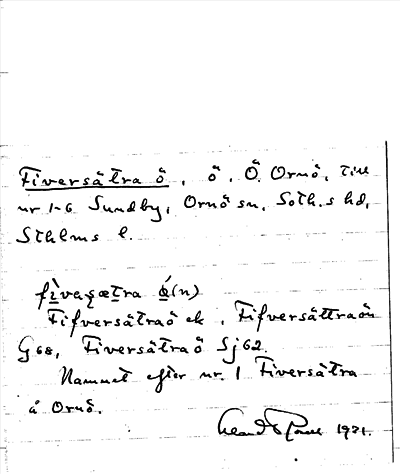 Fiversätra ö, ö, Ö. Ornö, till
nr 1-6 Sundby, Ornö sn, Soth.s hd,
Sthlms l.
fìvaṣætra ǿ(n)
Fifversätraö ek, Fifversättraön
G68, Fiversätraö Sj62.
Namnet efter nr. 1 Fiversätra
å Ornö.
1921.